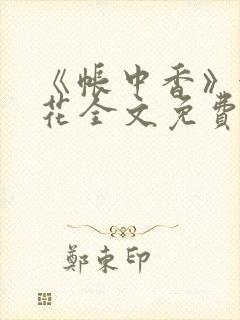 《帐中香》
花全文免費
鄭東印